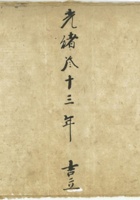 光緒十三年 吉立